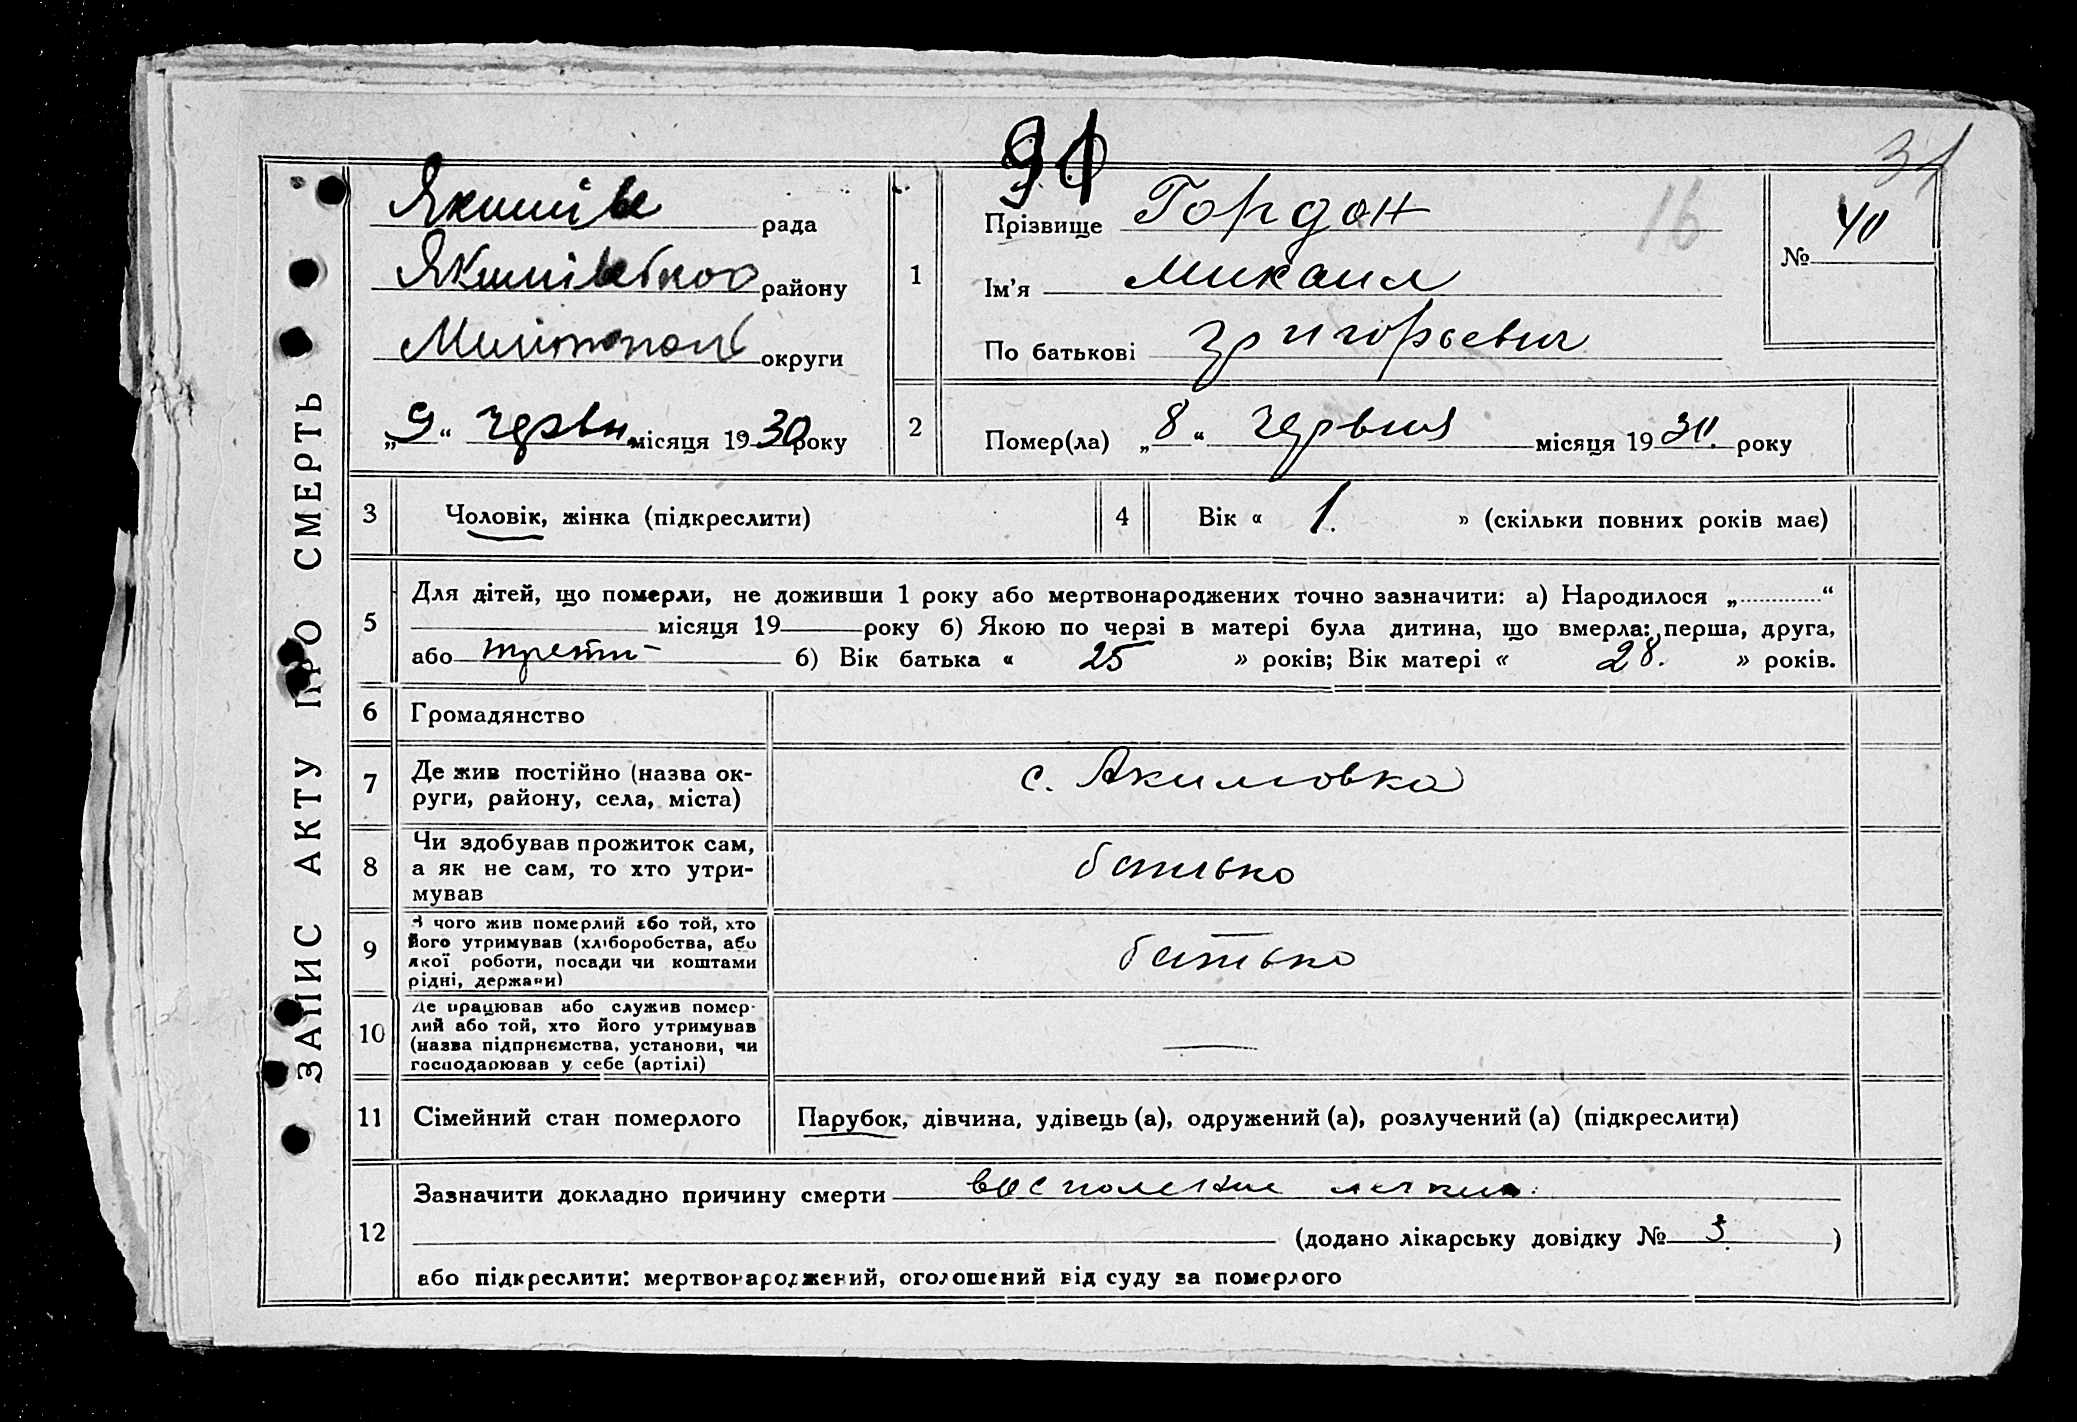 91
31
ЗАПИС АКТУ ПРО СМЕРТЬ
Якимів рада
Якимівського району
Мелітополь округи
„9“ червн місяця 1930 року
1
Прізвище Гордон
16
Ім'я Михаил
По батькові Григорьевич
№ 40
2
Помер(ла) „8“ червня місяця 1930. року
3 Чоловік, жінка (підкреслити)
4 Вік « 1. » (скільки повних років має)
5 Для дітей, що померли, не доживши 1 року або мертвонароджених точно зазначити: а) Народилося „ “
місяця 19 року б) Якою по черзі в матері була дитина, що вмерла: перша, друга,
або трети- б) Вік батька « 25 » років; Вік матері « 28. » років.
6 Громадянство
7 Де жив постійно (назва округи, району, села, міста) с. Акимовка
8 Чи здобував прожиток сам,
а як не сам, то хто утри-
мував батько
9 З чого жив померлий або той, хто
його утримував (хліборобства, або
якої роботи, посади чи коштами
рідні, держави) батько
10 Де працював або служив помер-
лий або той, хто його утримував
(назва підприємства, установи, чи
господарював у себе (артілі) —
11 Сімейний стан померлого Парубок, дівчина, удівець (а), одружений (а), розлучений (а) (підкреслити)
12 Зазначити докладно причину смерти воспаление легких.
(додано лікарську довідку № 3 )
або підкреслити: мертвонароджений, оголошений від суду за померлого